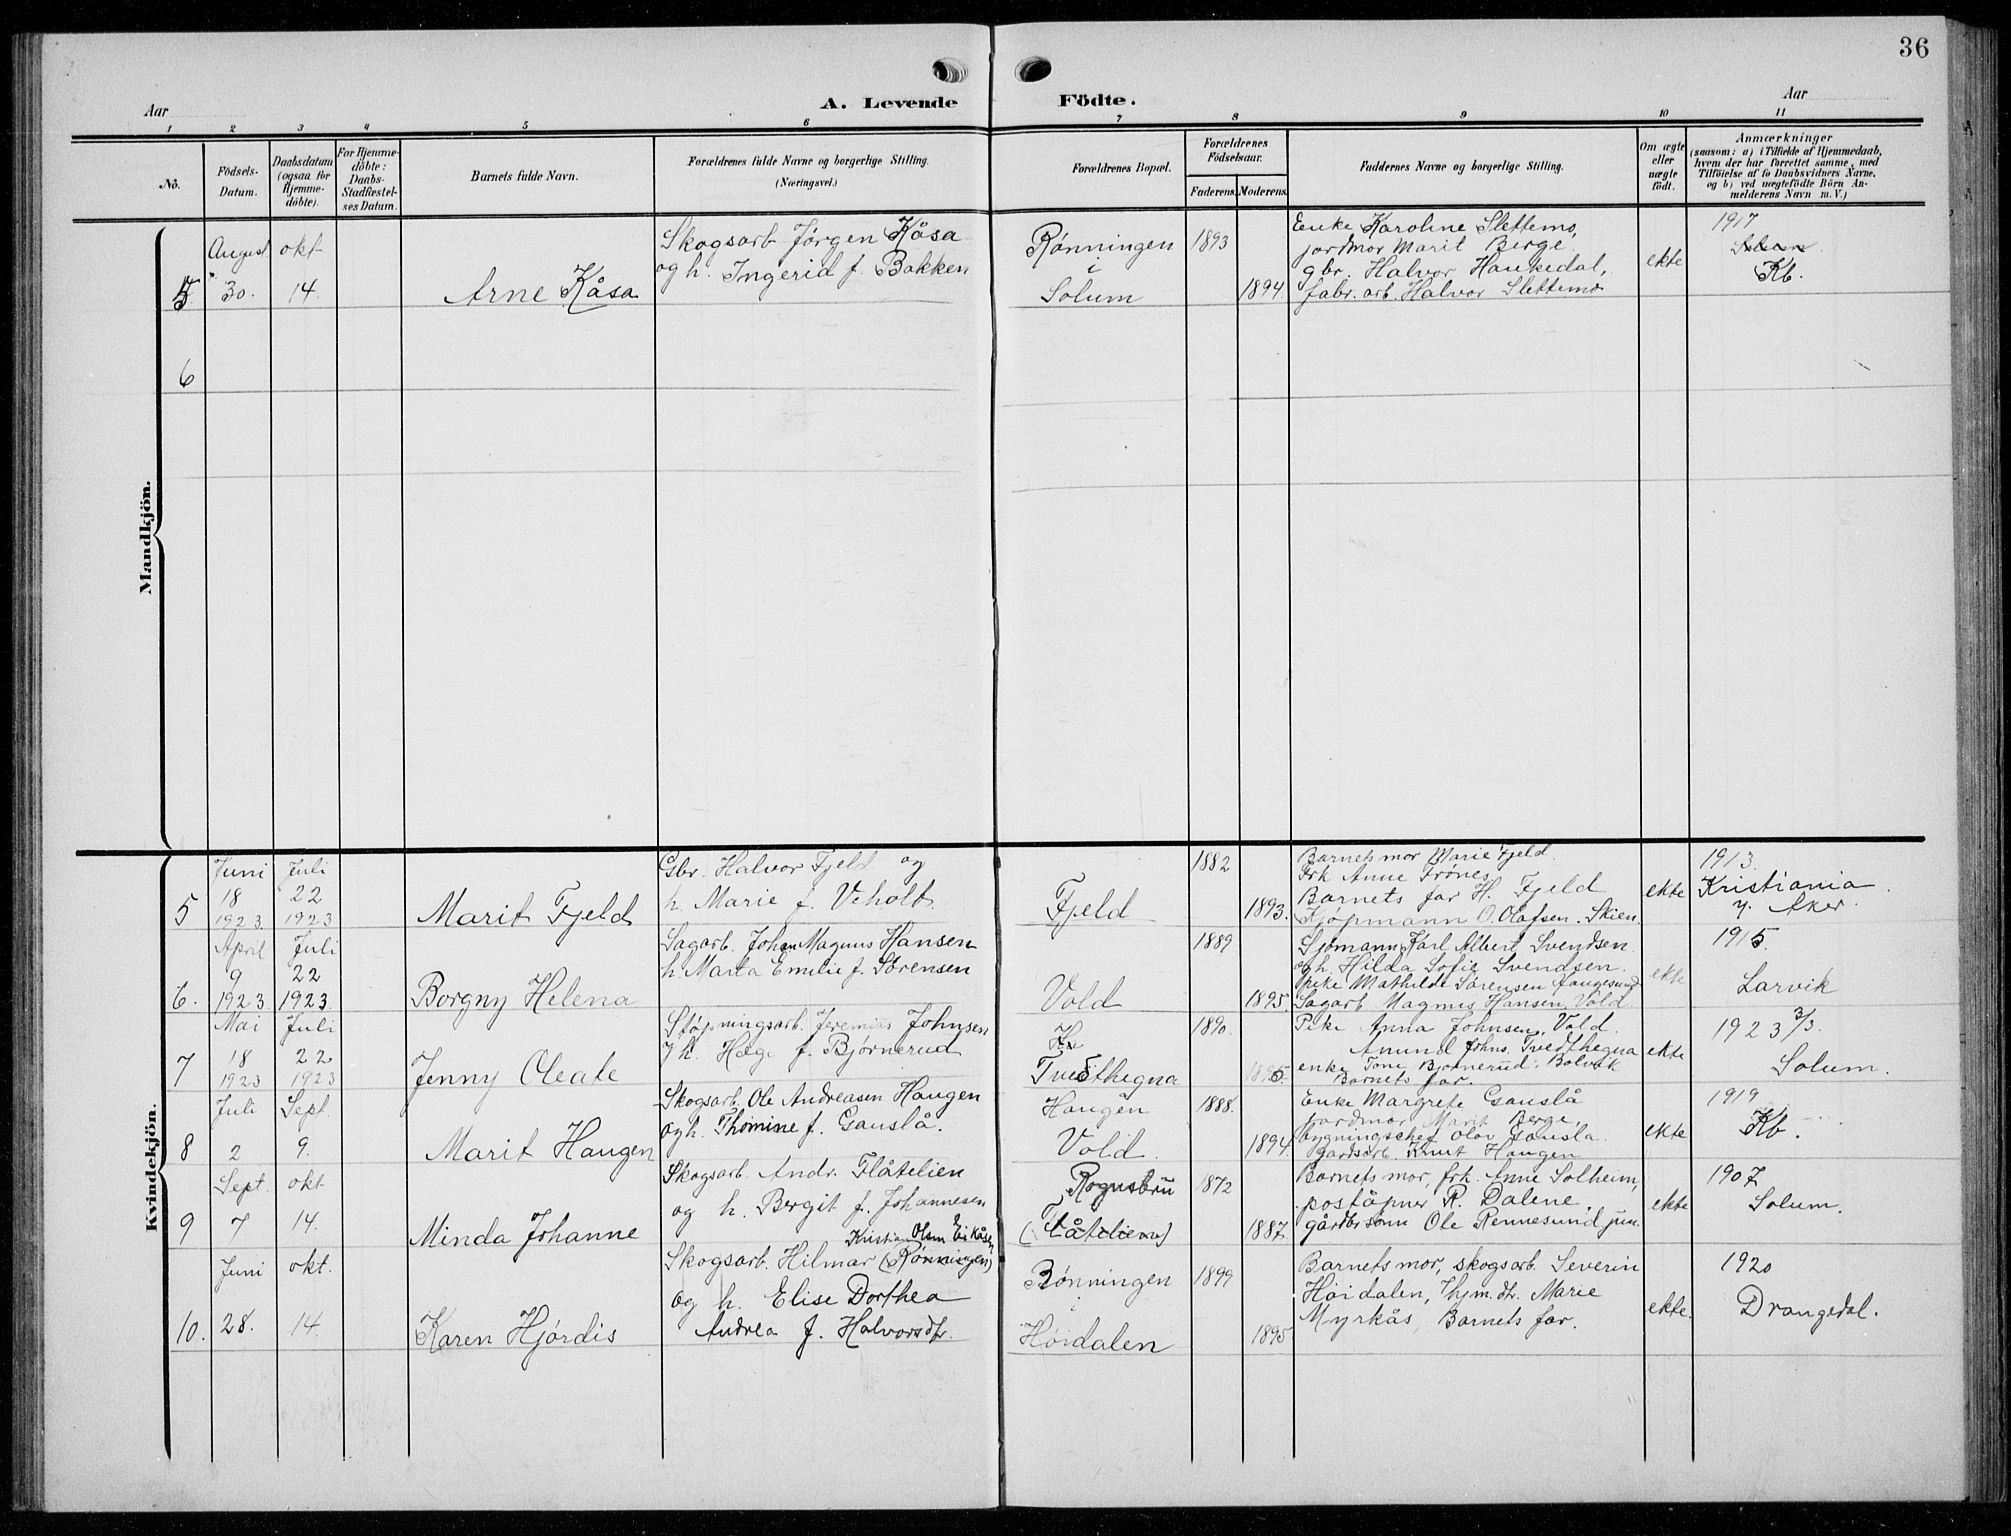 36
A. Levende Födte.
Aar
Aar
1 2 3 4 5 6 7 8 9 10 11
No.
Födsels-Datum.
Daabsdatum (ogsaa for Hjemmedöbte).
For Hjemmedöbte: Daabs-Stadfæstelses Datum.
Barnets fulde Navn.
Forældrenes fulde Navne og borgerlige Stilling.
(Næringsvei.)
Forældrenes Bopæl.
Forældrenes Födselsaar.
Faderens. Moderens.
Faddernes Navne og borgerlige Stilling.
Om ægte eller uægte födt.
Anmærkninger
(saasom: a) i Tilfælde af Hjemmedaab,
hvem der har forrettet samme, med
Tilföielse af to Daabsvidners Navne,
og b) ved uægtefödte Börn Anmelderens Navn m. V.)
Mandkjön.
5
August 30.
okt 14.
Arne Kåsa
Skogsarb Jørgen Kåsa
og h. Ingerid f. Bakken
Rønningen
i
Solum
1893
1894
Enke Karoline Slettemo,
jordmor Marit Berge.
gbr. Halvor Haukedal,
fabr. arb. Halvor Slettemo
ekte
1917
Solum
Kb.
6
Kvindekjön.
5
Juni 18 1923
Juli 22 1923
Marit Fjeld
Gbr. Halvor Fjeld og
h. Marie f. Veholt
Fjeld
1882
1893.
Barnets mor Marie Fjeld.
Frk Anne Frønes
Barnets far H. Fjeld
Kjøpmann O. Olafsen. Skien
ekte
1913.
Kristiania
v. Aker.
6.
April 9 1923
Juli 22 1923
Borgny Helena
Sagarb. Johan Magnus Hansen
h. Marta Emilie f. Sørensen
Vold
1889
1895.
Sjømann Karl Albert Svendsen.
og h. Hilda Sofie Svendsen.
Pike Mathilde Sørensen Haugesund
Sagarb Magnus Hansen Vold
ekte
1915.
Larvik
7
Mai 18 1923
Juli 22 1923
Jenny Oleate
Støpningsarb. Jeremias Johnsen
h. Hæge f. Bjørnerud
Tvedthegna
1890.
1895.
Pike Anna Johnsen, Vold.
Amund Johns. Tvedthegna
enke Tone Bjørnerud. Bolvik
Barnets far.
ekte
1923 3/3.
Solum.
8
Juli 2
Sept. 9.
Marit Haugen
Skogsarb. Ole Andreasen Haugen
og h. Thomine f. Gauslå.
Haugen
Vold.
1888.
1894.
Enke Margrete Gauslå
jordmor Marit Berge,
bygningschef Olav Gauslå.
Gardsarb. Knut Haugen
ekte
1919
Kb.
9
Sept. 7
okt 14.
Minda Johanne
Skogsarb. Andr. Flåtelien
og h. Bergit f. Johannesen
Rognsbru
(Flåtelien)
1872
1887.
Barnets mor, frk. Anne Solheim,
poståpner R. Dalene,
gårdbr sønn Ole Rennesund jun.
ekte
1907
Solum.
10.
Juni 28.
okt. 14.
Karen Hjørdis
Kristian Olsen Eikåsen
Skogsarb. Hilmar (Rønningen)
og h. Elise Dorthea
Andrea f. Halvorsdtr.
Rønningen
i
Høidalen
1899
1895
Barnets mor, skogsarb. Severin
Høidalen, Thjm. dtr. Marie
Myrkås, Barnets far.
ekte.
1920
Drangedal.